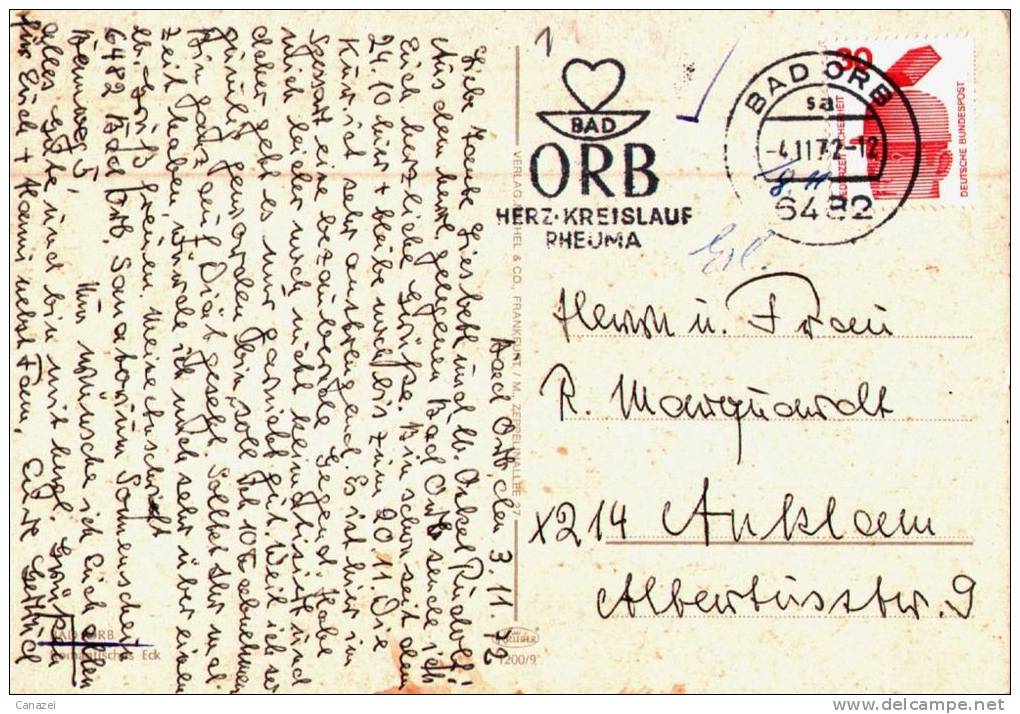 Bad Orb, den 3.11.72
Liebe Tante Liesbeth und lb. Onkel Rudolf!
Aus dem herrl. gelegenen Bad Orb sende ich
Euch herzliche Grüße. Bin schon seit dem
24.10. hier + bleibe noch bis zum 20.11. Die
Kur ist sehr anstrengend. Es ist hier im
Spessart eine bezaubernde Gegend. Habe
mich leider noch nicht und
daher geht es mir garnicht gut. Weil ich so
geworden bin, soll ich 10 abnehmen
Bin ganz auf Diät gesetzt. Solltet Ihr mal
Zeit haben, würde ich mich sehr über einen
lb. Gruß freuen. Meine Anschrift
6482 Bad Orb, Sanatorium Sonnenschein
5,
Nun wünsche ich Euch allen
alles Gute und bin mit herzl. Grüßen
für Euch + Hanni nebst Fam. Eure Gertrud
BAD ORB
Romantisches Eck
VERLAG MICHEL & CO., FRANKFURT / M., ZEPPELINALLEE 27
KRÜGER
1200/9
1
BAD
ORB
HERZ·KREISLAUF
RHEUMA
BAD ORB
sa
-4.11.72-12
6482
30
JEDERZEIT SICHERHEIT
DEUTSCHE BUNDESPOST
8. 11
Erl.
Herrn u. Frau
R. Marquardt
X214 Anklam
Albertusstr. 9
Canazei
www.delcampe.net